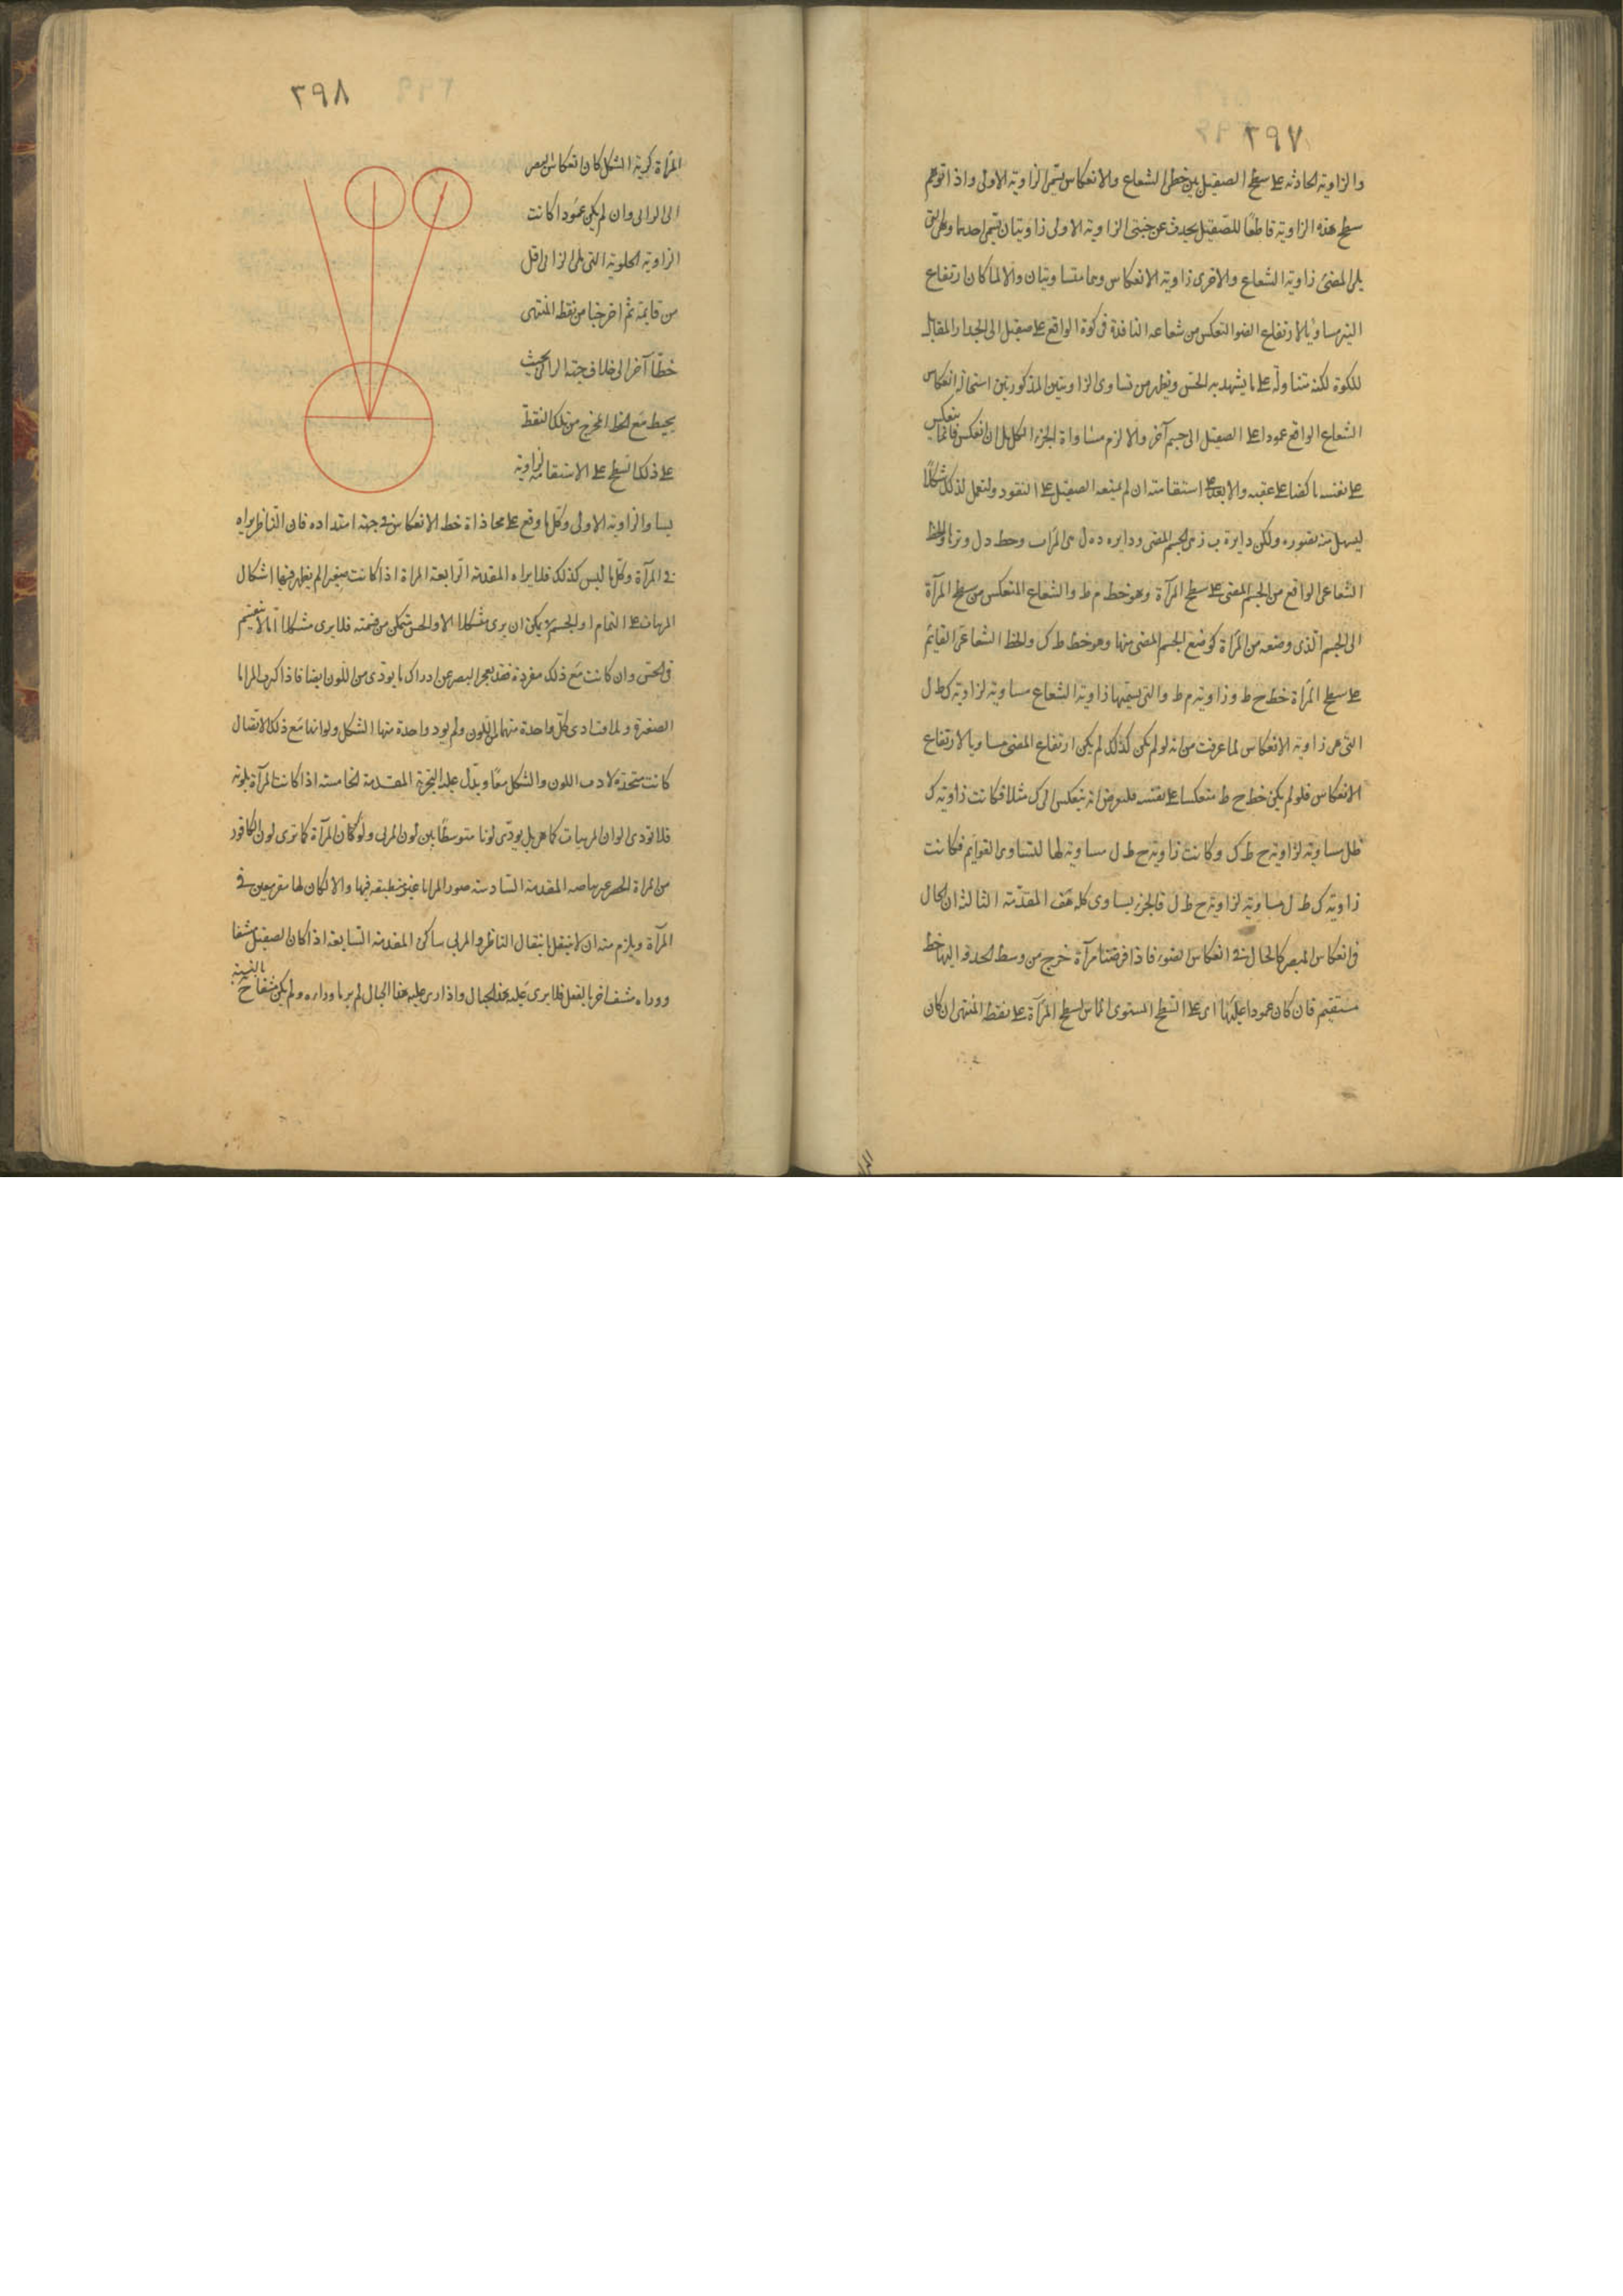 ٢٩٧
والزاوية الحادثة على سطح الصقيل بين خطى الشعاع والانعكاس يتم الزاوية الاولى واذا توهم
سطح هذه الزاوية قاطعا للصقيل يحدث عن جنبتى الزاوية الاولى زاويتان يتم احدهما وهى التى
يلى المضئ زاوية الشعاع والاخرى زاوية الانعكاس وهما متساويتان والا لما كان ارتفاع
النير مساويا لارتفاع الضوء المنعكس من شعاعه النافذة فى كوة الواقع على صقيل الى الجدار المقابل
للكوة لكنه متناوله على ما يشهد به الحس ويظهر من تساوى الزاويتين المذكورتين استحالة انعكاس
الشعاع الواقع عمودا على الصقيل الى جسم آخر والا لزم مساواة الجزء الكل بل ان انعكس فانما ينعكس
على نفسه ناكصا على عقبه والا بعد على استقامته ان لم يمنعه الصقيل على النفوذ ولنعمل لذلك شكلا
ليسهل منه تصوره ولكن دايرة ب ز من الجسم المضئ ودايره ده ل من المرآت وخط د ل وترا والخط
الشعاعى الواقع من الجسم المضئ على سطح المرآة وهو خط م ط والشعاع المنعكس من سطح المرآة
الى الجسم الذى وضعه من المرآة كوضع الجسم المضئ منها وهو خط ط ك والخط الشعاعى القايم
على سطح المرآة خط ح ط وزاوية م ط والتى يسميها زاوية الشعاع مساوية لزاوية ك ط ل
التى هى زاوية الانعكاس لما عرفت من انه لو لم يكن كذلك لم يكن ارتفاع المضئ مساويا لارتفاع
الانعكاس فلو لم يكن خط ح ط منعكسا على نفسه فلنفرض انه ينعكس الى ك مثلا فكانت زاوية ك
ط ل مساوية لزاوية ح ط ك وكانت زاوية ح ط ل مساوية لها لتساوى القوايم فكانت
زاوية ك ط ل مساوية لزاوية ح ط ل فالجزء يساوى كله هف المقدمة الثالثة ان الحال
فى انعكاس المبصر كالحال فى انعكاس الضوء فاذا فرضنا مرآة خرج من وسط الحدقه اليها خط
مستقيم فان كان عمودا عليها اى على السطح المستوى المماس لسطح المرآة على نقطة المنتهى ان كان
٢٩٨
المرآة كرية الشكل كان انعكاس البصر
الى الرائى وان لم يكن عمودا كانت
الزاوية التى يلى الرائى اقل
من قايمة ثم اخرجنا من نقطة المنتهى
خطا آخر الى خلاف جهة الرائى بحيث
يحيط مع الخط المخرج من تلك النقطة
على ذلك السطح على الاستقامة زاوية
يساو الزاوية الاولى وكل ما وقع على محاذاة خط الانعكاس فى جهة امتداده فان الناظر يراه
فى المرآة وكل ما ليس كذلك فلا يراه المقدمة الرابعة المراة اذا كانت صغيرا لم يظهر فيها اشكال
المرئيات على التمام اولجسم لا يمكن ان يرى مشكلا الا والحس يتمكن من قسمته فلا يرى مشكلا ما لا ينقسم
فى الحس وان كانت مع ذلك مفردة فقد يعجز البصر عن ادراك ما يودى من اللون ايضا فاذا كرت المرايا
الصغيرة ولما فتادى كل واحدة منها اللون ولم يود واحدة منها الشكل ولو انها مع ذلك الاتصال
كانت متحدة لادت اللون والشكل معا ويدل عليه التجربة المقدمة الخامسة اذا كانت المرآة ملونة
فلا تودى الوان المرئيات كما هى بل يودى لونا متوسطا بين لون المرئى ولون المرآة كما ترى لون الكافور
من المراة المقدمة السادسة صور المرايا غير منطبقة فيها والا لكان لها مقر معين فى
المرآة ويلزم منه ان لا ينتقل بانتقال الناظر والمرئى ساكن المقدمة السابعة اذا كان الصقيل مشفا
ووراه مشف اخر بالفعل فلا يرى عليه هذا الخيال واذا رى عليه هذا الخيال لم ير ما وراءه ولم يكن مشفا ح بالنسبة